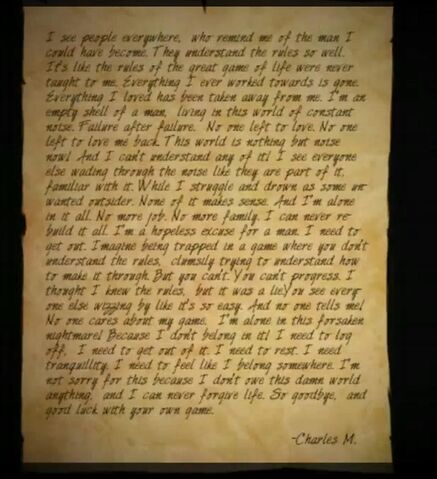 I see people everywhere, who remind me of the man I
could have become. They understand the rules so well.
It's like the rules of the great game of life were never
taught to me. Everything I ever worked towards is gone.
Everything I loved has been taken away from me. I'm an
empty shell of a man, living in this world of constant
noise. Failure after failure. No one left to love. No one
left to love me back. This world is nothing but noise
now! And I can't understand any of it! I see everyone
else wading through the noise like they are part of it,
familiar with it. While I struggle and drown as some un-
wanted outsider. None of it makes sense. And I'm alone
in it all. No more job. No more family. I can never re-
build it all. I'm a hopeless excuse for a man. I need to
get out. Imagine being trapped in a game where you don't
understand the rules, clumsily trying to understand how
to make it through. But you can't. You can't progress. I
thought I knew the rules, but it was a lie.You see every
one else wizzing by like it's so easy. And no one tells me!
No one cares about my game. I'm alone in this forsaken
nightmare! Because I don't belong in it! I need to log
off, I need to get out of it. I need to rest. I need
tranquillity. I need to feel like I belong somewhere. I'm
not sorry for this because I don't owe this damn world
anything, and I can never forgive life. So goodbye, and
good luck with your own game.
-Charles M.